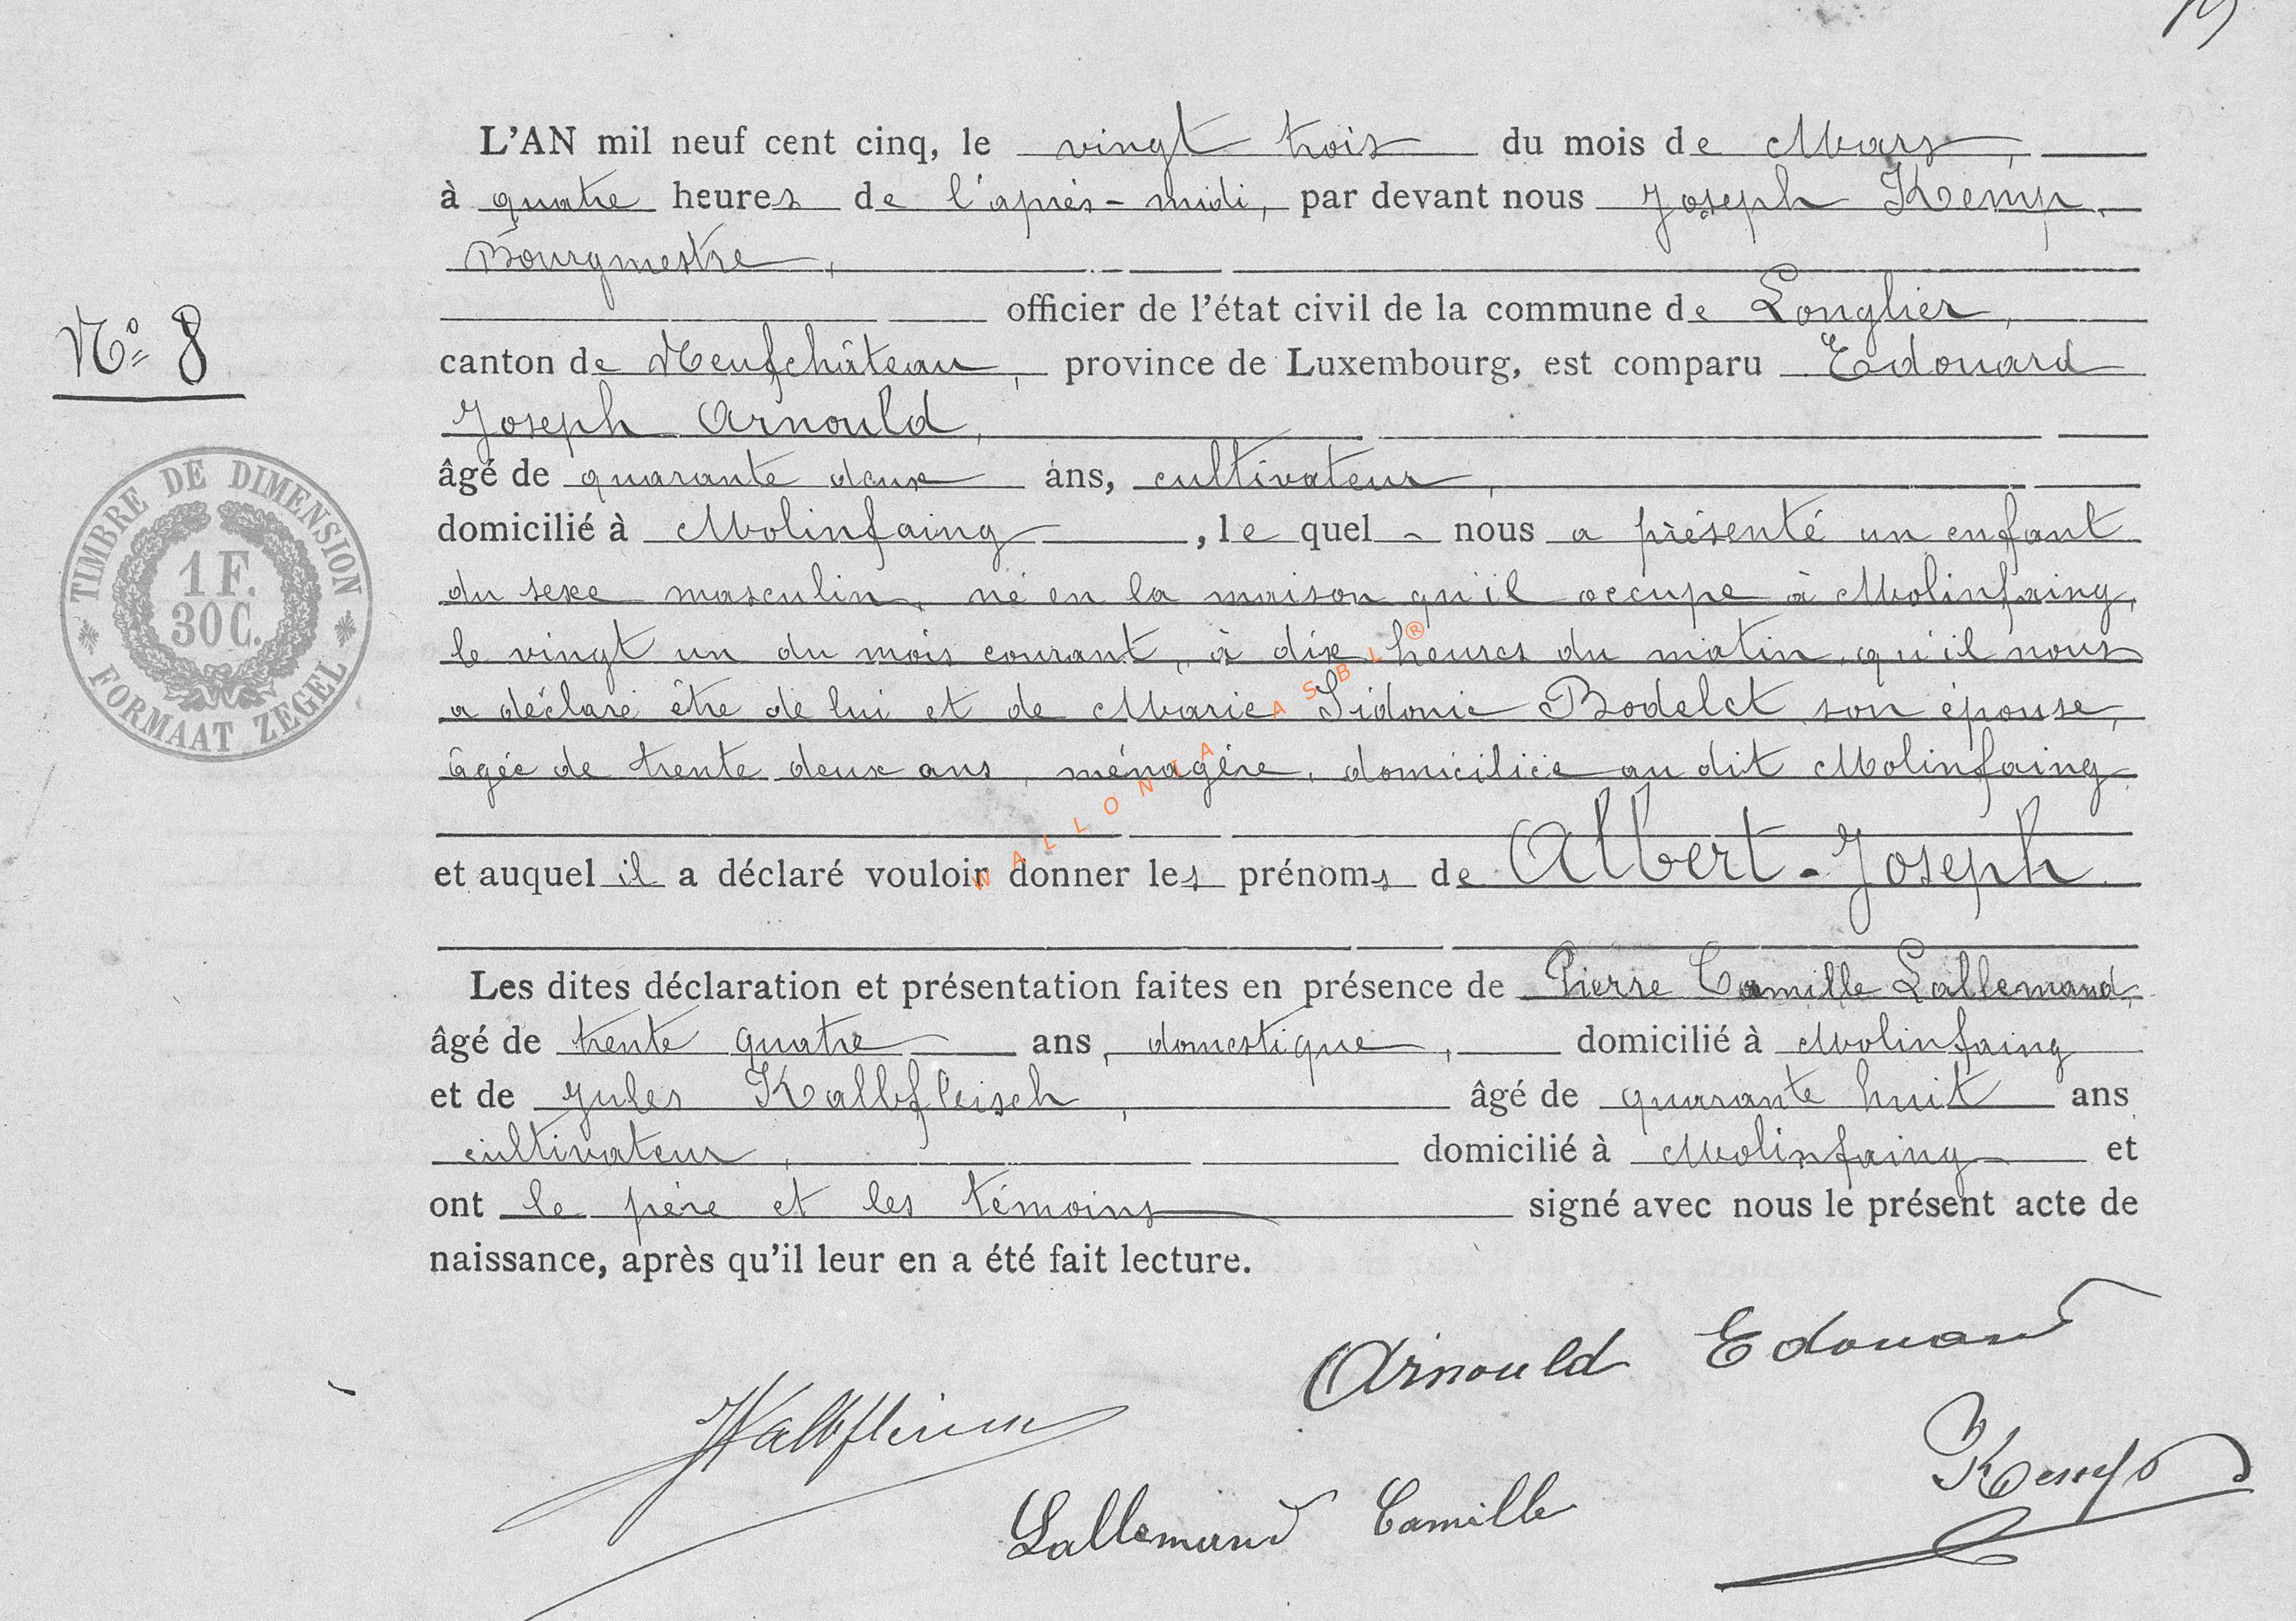 L'AN mil neuf cent cinq, le vingt trois du mois de Mars,
à quatre heures de l'après-midi, par devant nous Joseph Kemp,
Bourgmestre,
officier de l'état civil de la commune de Longlier,
N° 8
canton de Neufchâteau, province de Luxembourg, est comparu Edouard
Joseph Arnould,
âgé de quarante deux ans, cultivateur,
TIMBRE DE DIMENSION
1 F.
30 C.
FORMAAT ZEGEL
domicilié à Molinfaing, le quel - nous a présenté un enfant
du sexe masculin, né en la maison qu'il occupe à Molinfaing,
le vingt un du mois courant, à dix heures du matin, qu'il nous
a déclaré être de lui et de Marie Sidonie Bodelet son épouse,
âgée de trente deux ans, ménagère, domiciliée au dit Molinfaing
WALLONIA ASBL®
et auquel il a déclaré vouloir donner les prénoms de Albert-Joseph
Les dites déclaration et présentation faites en présence de Pierre Camille Lallemand,
âgé de trente quatre ans, domestique, domicilié à Molinfaing
et de Jules Kalbfleisch, âgé de quarante huit ans
cultivateur, domicilié à Molinfaing et
ont le père et les témoins signé avec nous le présent acte de
naissance, après qu'il leur en a été fait lecture.
Arnould Edouard
Kemp
Lallemand Camille